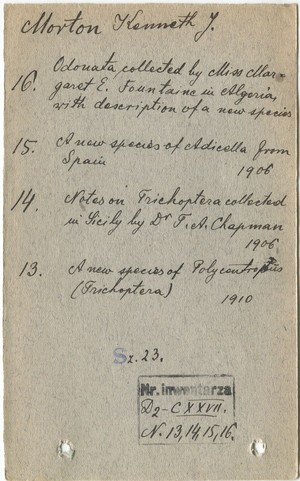 Morton Kenneth J.
16. Odonata collected by Miss Mar-
garet E. Fountaine in Algeria,
with description of a new species
15. A new species of Adicella from
Spain
1906
14. Notes on Trichoptera collected
in Sicily by Dr T. A. Chapman
1906
13. A new species of Polycentropus
(Trichoptera)
1910
Sz. 23.
Nr. inwentarza
D2-CXXVII.
N. 13, 14, 15, 16.